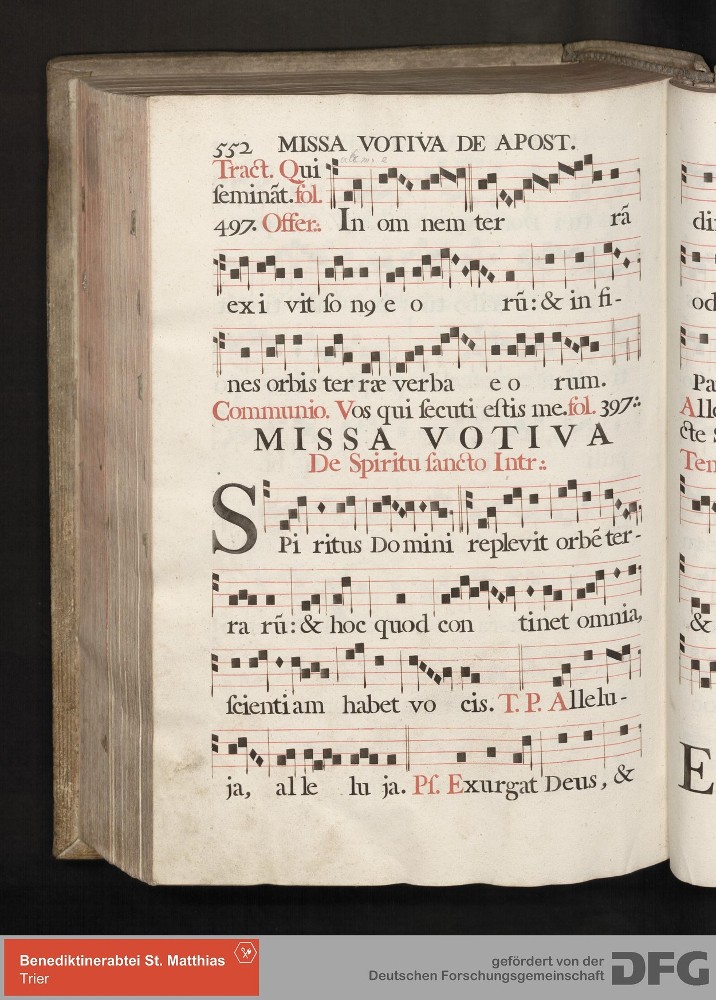 552 MISSA VOTIVA DE APOST.
Tract. Qui
seminãt. fol.
497. Offer:. In om nem ter rã
exi vit so n9 e o rũ: & in fi-
nes orbis ter ræ verba e o rum.
Communio. Vos qui secuti estis me. fol. 397:.
MISSA VOTIVA
De Spiritu sancto Intr:.
SPi ritus Domini replevit orbẽ ter-
ra rũ: & hoc quod con tinet omnia,
scientiam habet vo cis. T. P. Allelu-
ja, alle lu ja. Ps. Exurgat Deus, &
di
od
Pa
Alle
cte s
Ten
&
E
Benediktinerabtei St. Matthias
Trier
gefördert von der
Deutschen Forschungsgemeinschaft DFG